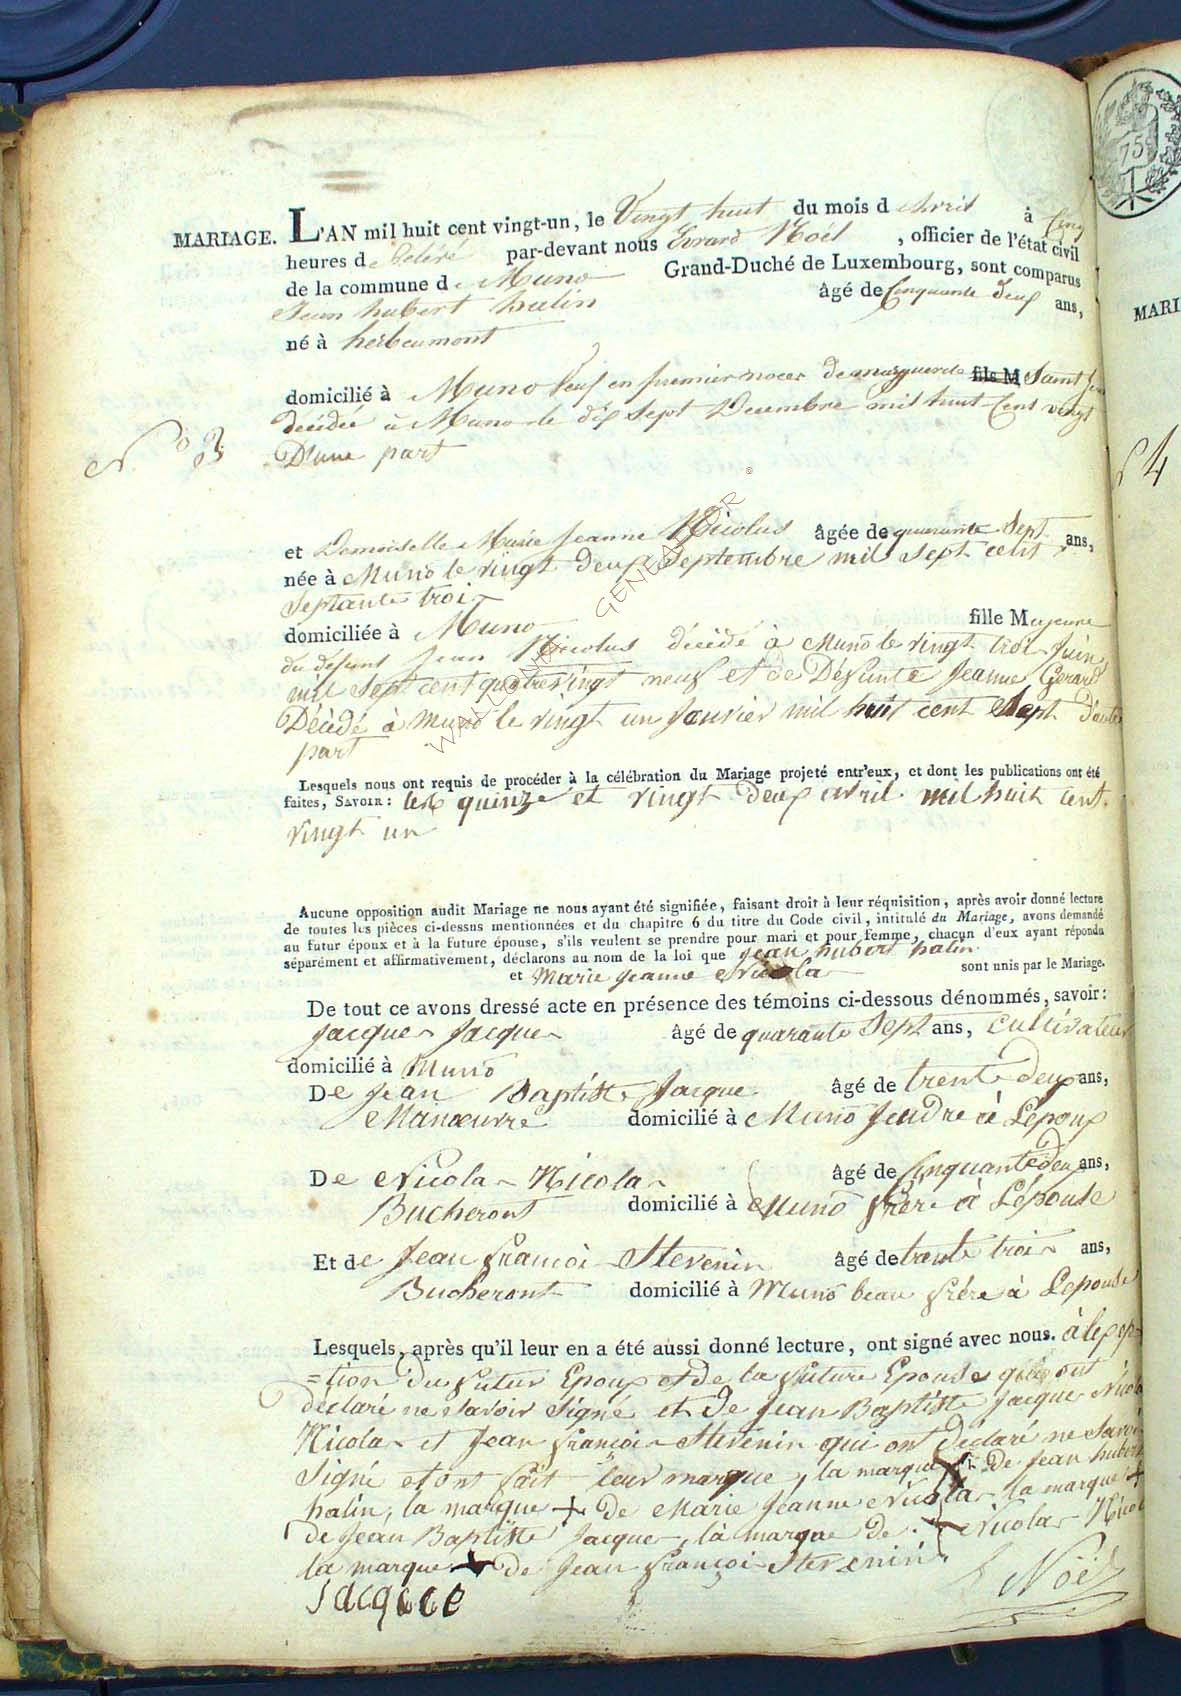 MARIAGE. L'AN mil huit cent vingt-un, le Vingt huit du mois d Avril à Cinq
heures de par-devant nous Evrard Noël, officier de l'état civil
de la commune de Muno Grand-Duché de Luxembourg, sont comparus
Jean hubert halin âgé de Cinquante deux ans,
né à herbeumont
domicilié à Muno Veuf en premier noces de marguerite fils M Saint
décédée à Muno le dix Sept Decembre mil huit Cent vingt
N° 3
D'une part
et Demoiselle Marie Jeanne Nicolas âgée de quarante Sept ans,
née à Muno le vingt deux Septembre mil sept cent
Septante troi
domiciliée à Muno fille Majeure
du défunt Jean Nicolas décédé à Muno le vingt troi Juin
mil Sept cent quatre vingt neuf et de Défunte Jeanne Gerard
Décédé à Muno le vingt un Janvier mil huit cent Sept D'autre
part
Lesquels nous ont requis de procéder à la célébration du Mariage projeté entr'eux, et dont les publications ont été
faites, SAVOIR : les quinze et vingt deux avril mil huit cent
vingt un
Aucune opposition audit Mariage ne nous ayant été signifiée, faisant droit à leur réquisition, après avoir donné lecture
de toutes les pièces ci-dessus mentionnées et du chapitre 6 du titre du Code civil, intitulé du Mariage, avons demandé
au futur époux et à la future épouse, s'ils veulent se prendre pour mari et pour femme, chacun d'eux ayant répondu
séparément et affirmativement, déclarons au nom de la loi que Jean hubert halin
et Marie Jeanne Nicola sont unis par le Mariage.
De tout ce avons dressé acte en présence des témoins ci-dessous dénommés, savoir :
Jacque Jacque âgé de quarante Sept ans, Cultivateur
domicilié à Muno
De Jean Baptiste Jacque âgé de trente deux ans,
Manœuvre domicilié à Muno Jendre à Lepoux
De Nicola Nicola âgé de Cinquante deux ans,
Bucheront domicilié à Muno frère à Lépouse
Et de Jean françoi Stevenin âgé de trante troi ans,
Bucheront domicilié à Muno beau frére à Lepouse
Lesquels, après qu'il leur en a été aussi donné lecture, ont signé avec nous. à lexcep
=tion du futur Epoux et de la future Epouse qui ont
declaré ne Savoir Signé et de Jean Baptiste Jacque Nicola
Nicola et Jean françoi Stevenin qui ont declaré ne Savoir
Signé et ont fait leur marque, la marque X de Jean hubert
halin, la marque + de Marie Jeanne Nicola la marque +
de Jean Baptiste Jacque, la marque de + Nicola Nicol
la marque + de Jean françoi Stevenin.
Jacque
E Noël
WALLONIA © GENEATOR
75
MARI
4